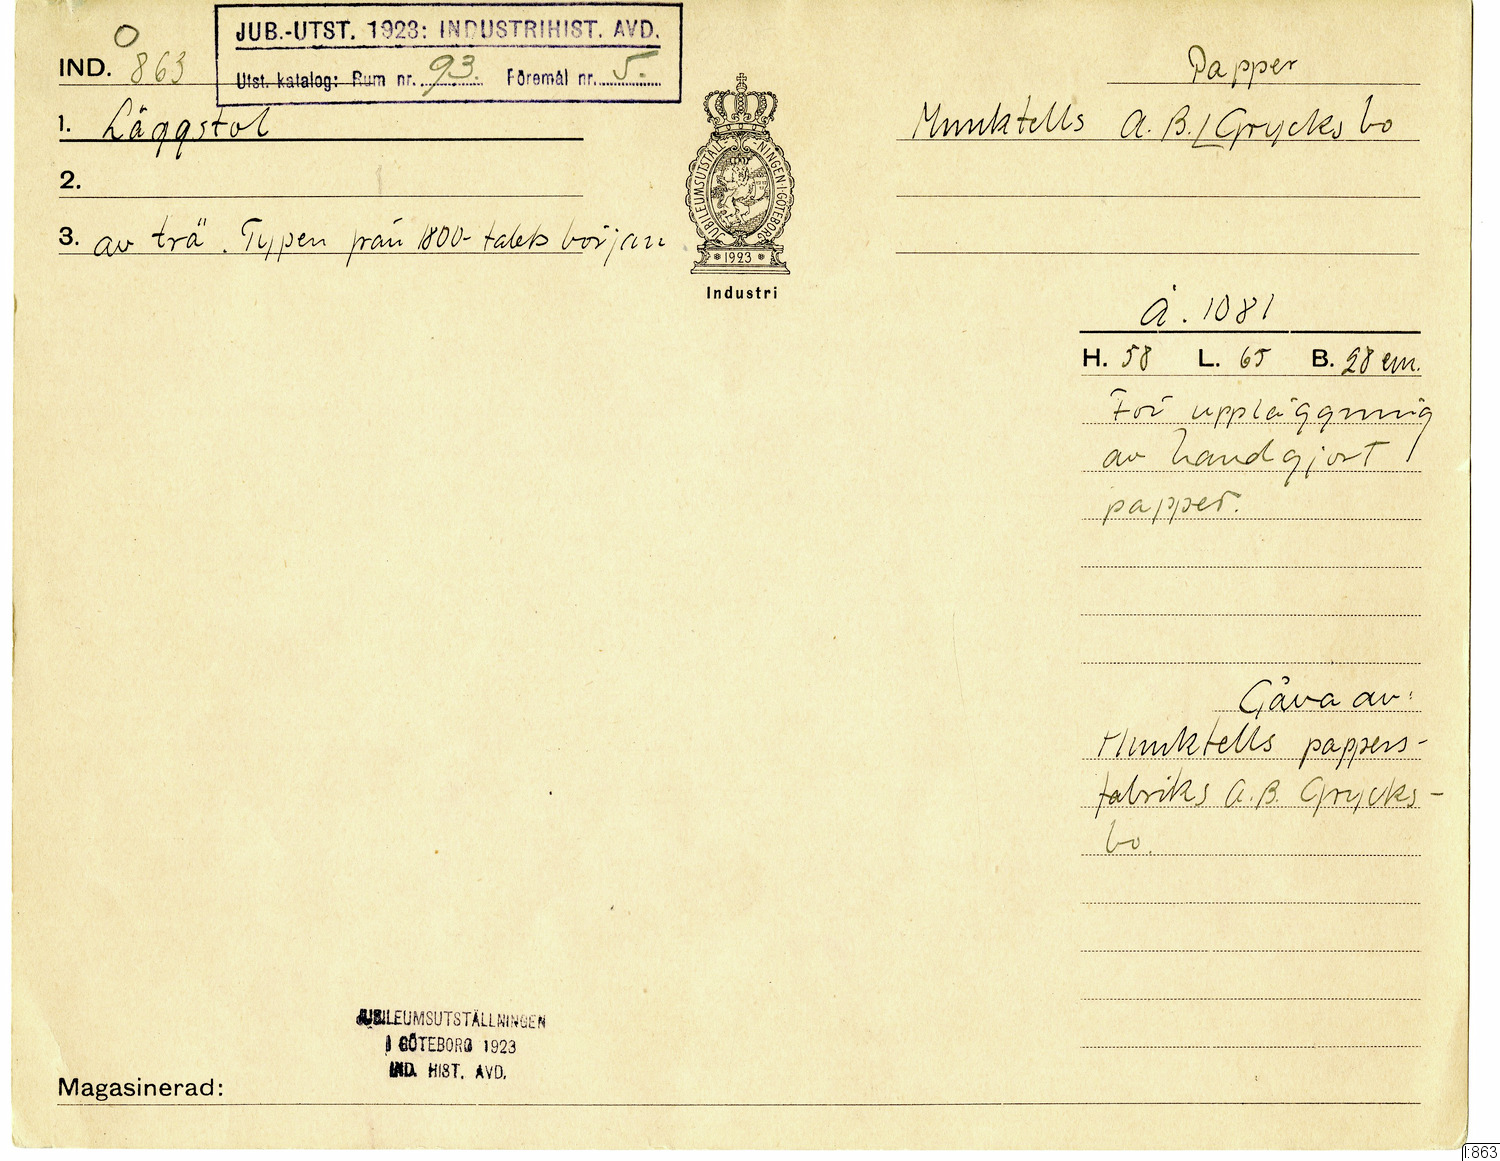 JUB.-UTST. 1923: INDUSTRIHIST. AVD.
Utst. katalog: Rum nr. 93. Föremål nr. 5.
O
IND. 863
Papper
1. Läggstol
Munktells A.B. Grycksbo
2.
3. av trä. Typen från 1800-talets början
JUBILEUMSUTSTÄLL-NINGEN I GÖTEBORG
1923
Industri
Å. 1081
H. 58 L. 65 B. 28 cm.
För uppläggning
av handgjort
papper.
Gåva av:
Munktells pappers-
fabriks A.B. Grycks-
bo.
JUBILEUMSUTSTÄLLNINGEN
I GÖTEBORG 1923
IND. HIST. AVD.
Magasinerad:
I:863